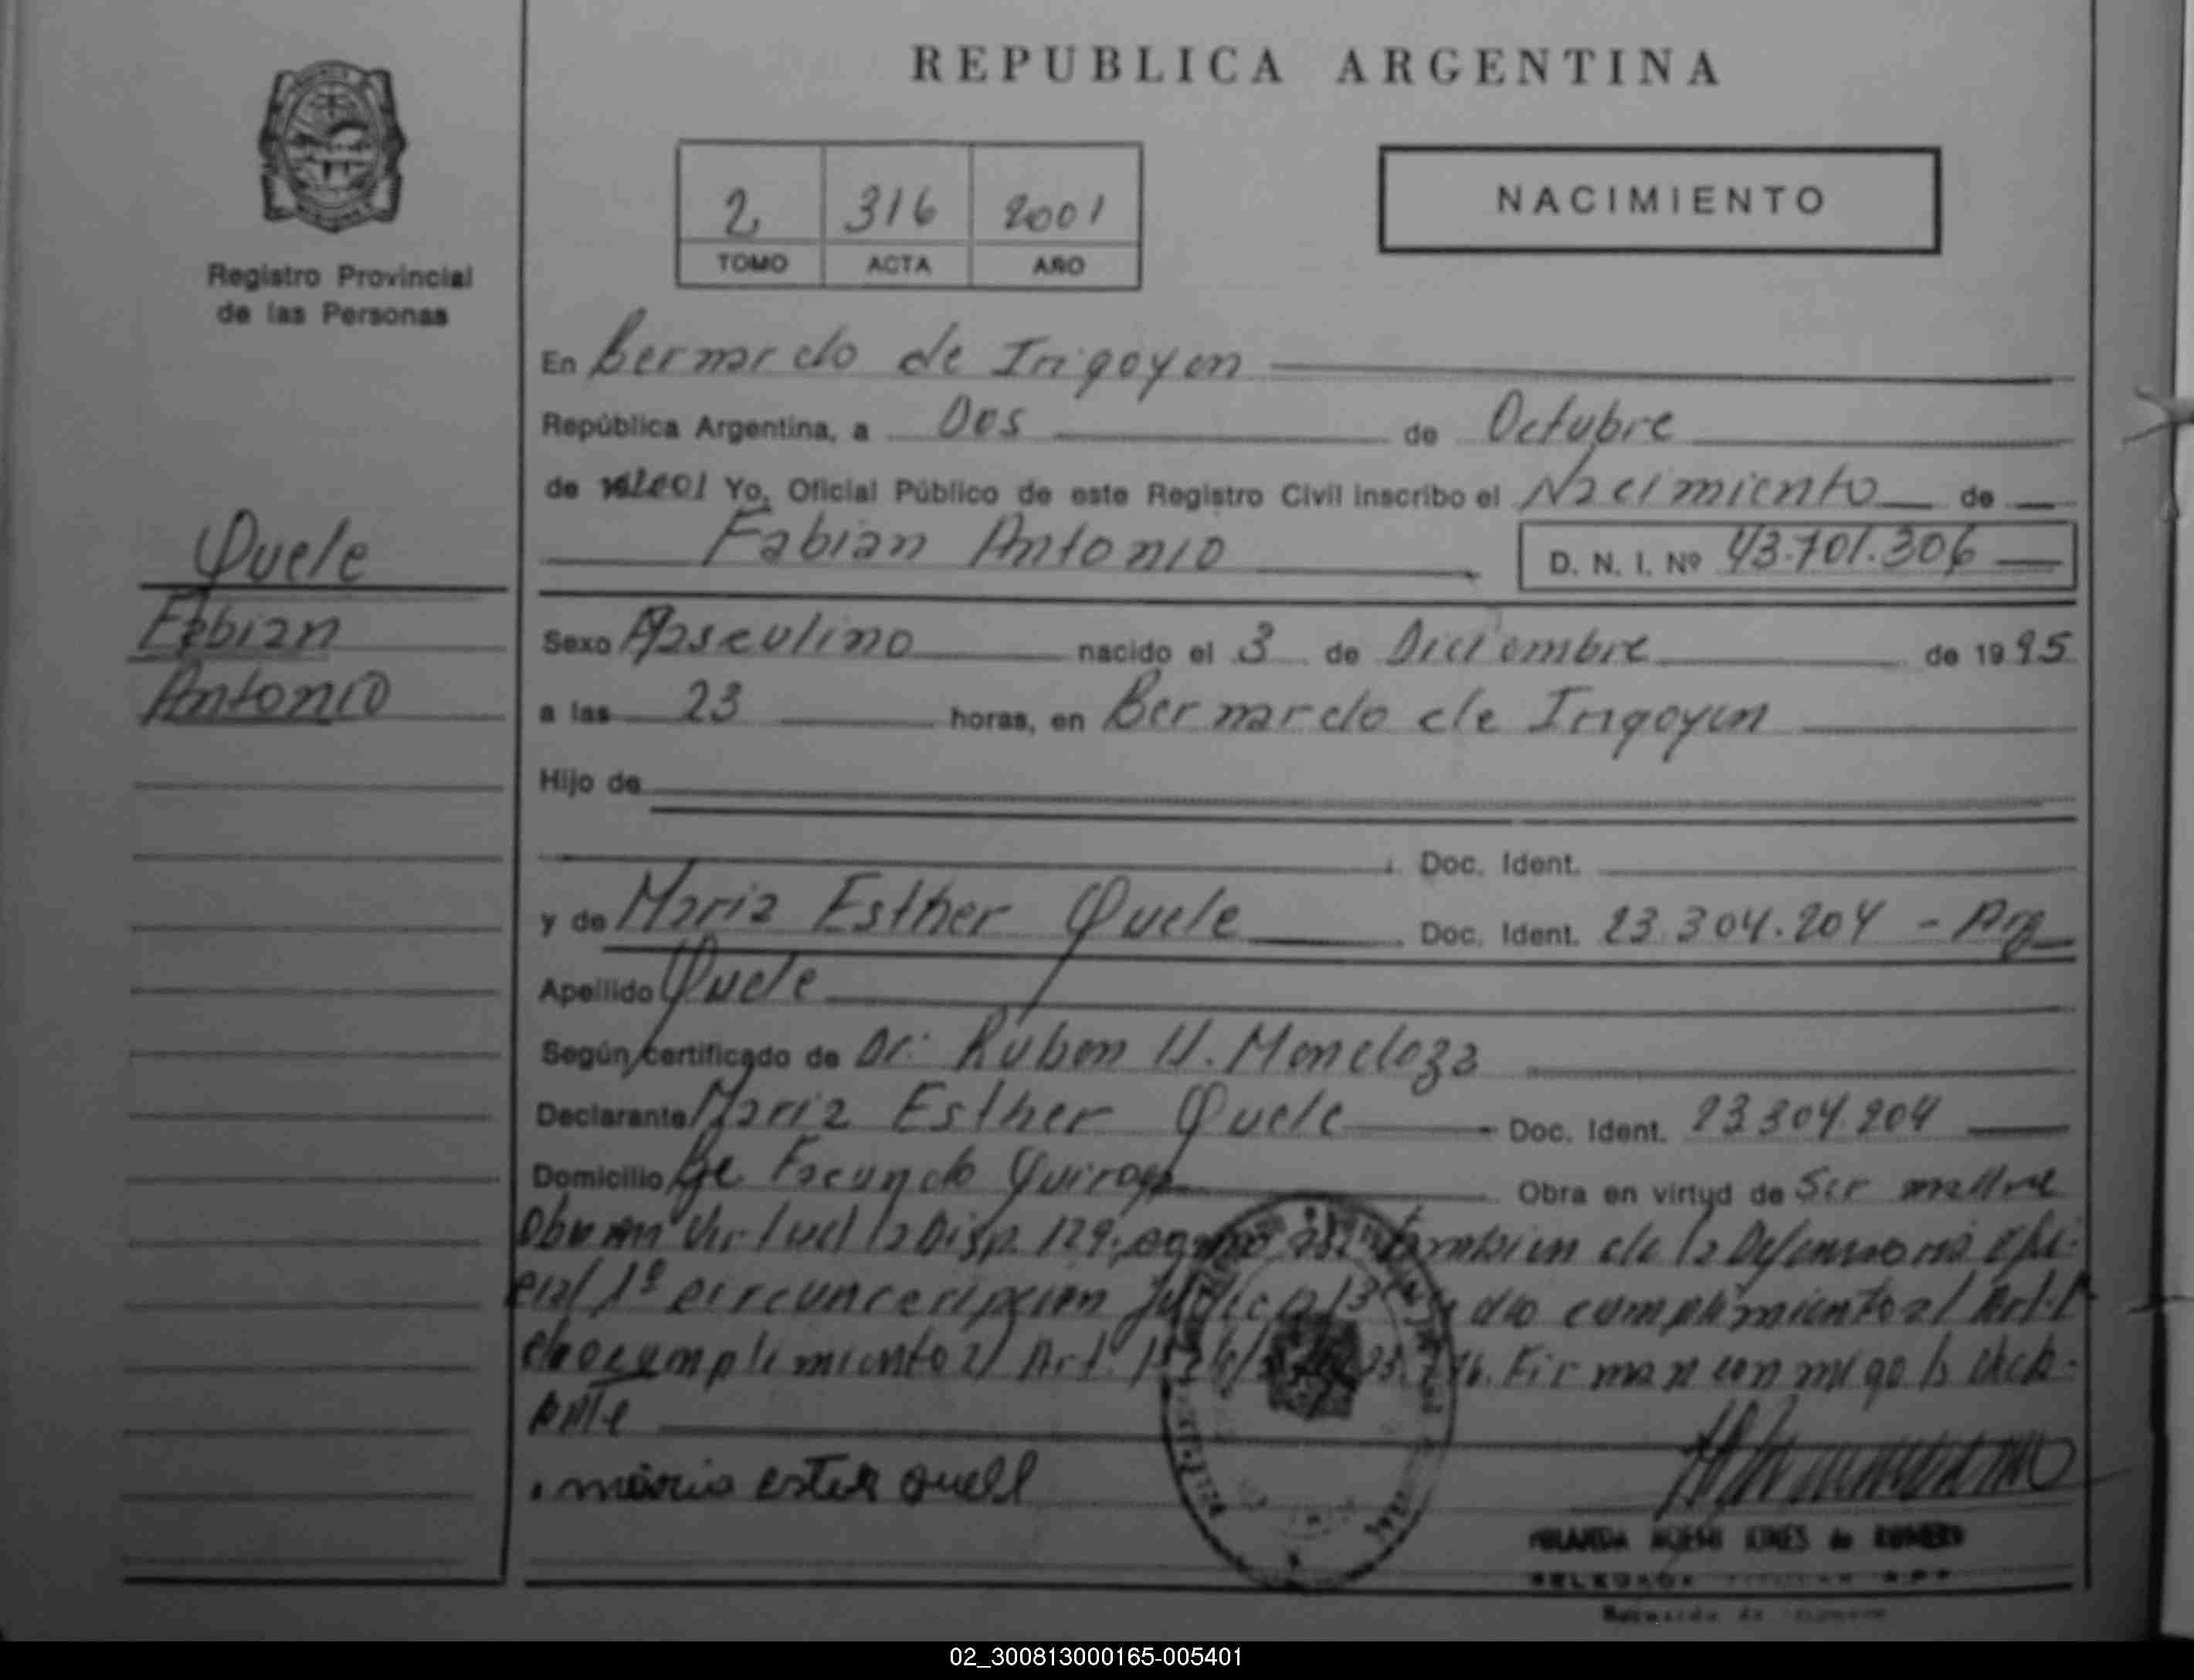 REPUBLICA ARGENTINA
Registro Provincial
de las Personas
2 316 2001
TOMO ACTA AÑO
NACIMIENTO
En Bernardo de Irigoyen
República Argentina, a Dos de Octubre
de 2001 Yo, Oficial Público de este Registro Civil inscribo el Nacimiento de
Fabian Antonio D. N. I. Nº 43.701.306
Quele
Fabian
Antonio
Sexo Masculino nacido el 3 de Diciembre de 1995
a las 23 horas, en Bernardo de Irigoyen
Hijo de
Doc. Ident.
y de Maria Esther Quele Doc. Ident. 23.304.204 - Arg
Apellido Quele
Según certificado de Dr. Ruben H. Mendoza
Declarante Maria Esther Quele Doc. Ident. 23.304.204
Domicilio Facundo Quiroga Obra en virtud de Ser madre
virtud la Disp. 129 de la Defensoria ofi-
cial 1º Judicial dio cumplimiento al Art.
cumplimiento al Art. Firma conmigo la decla-
rante
maria ester quell
NOEMI de ROMERO
Bernardo de Irigoyen
02_300813000165-005401